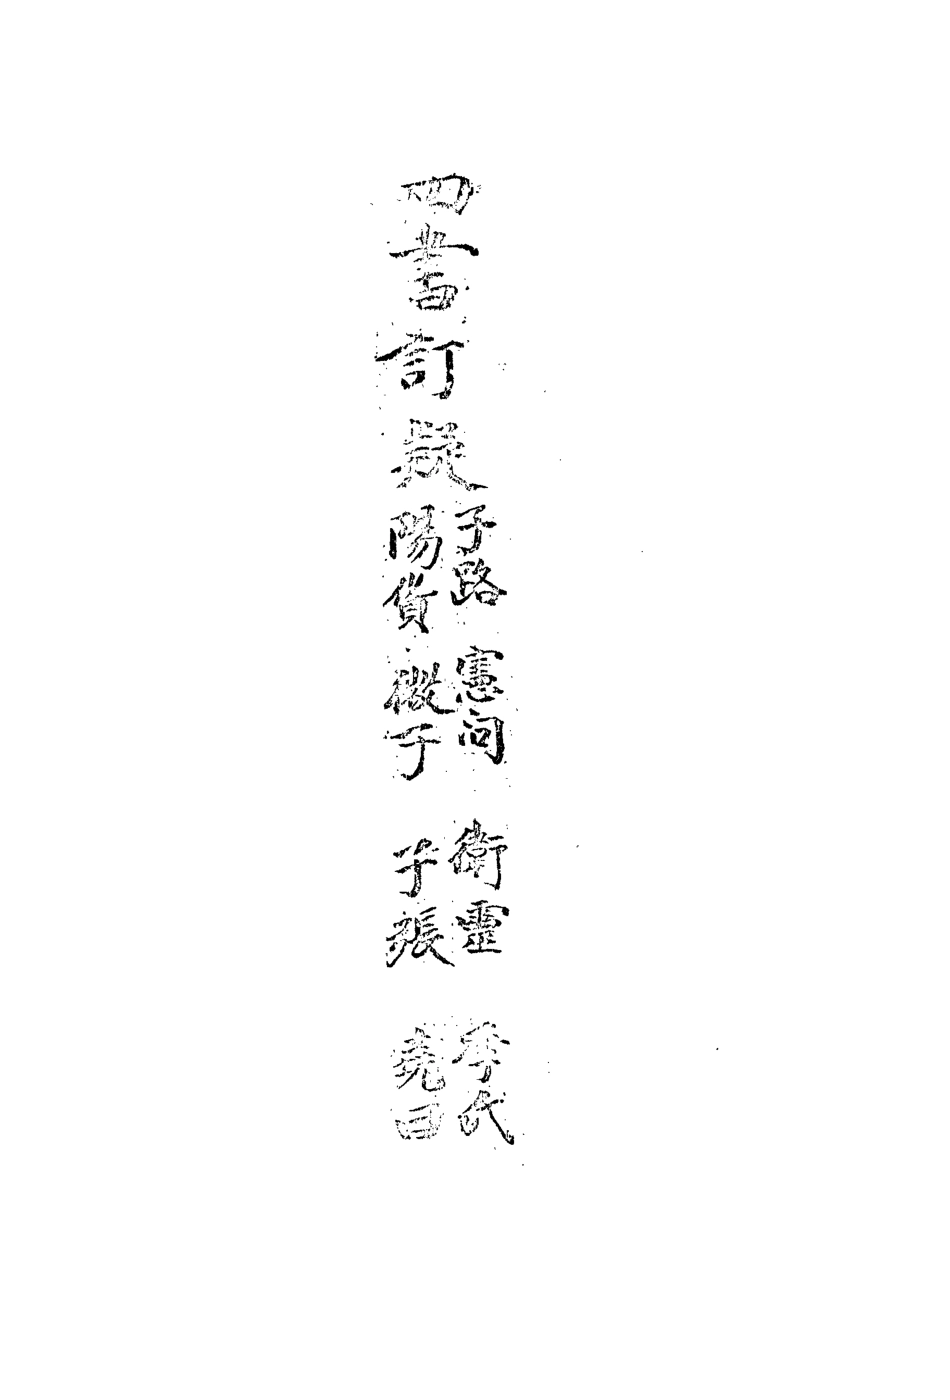 四書訂疑
子路 憲问 衛靈 季氏
陽貨 微子 子張 堯曰